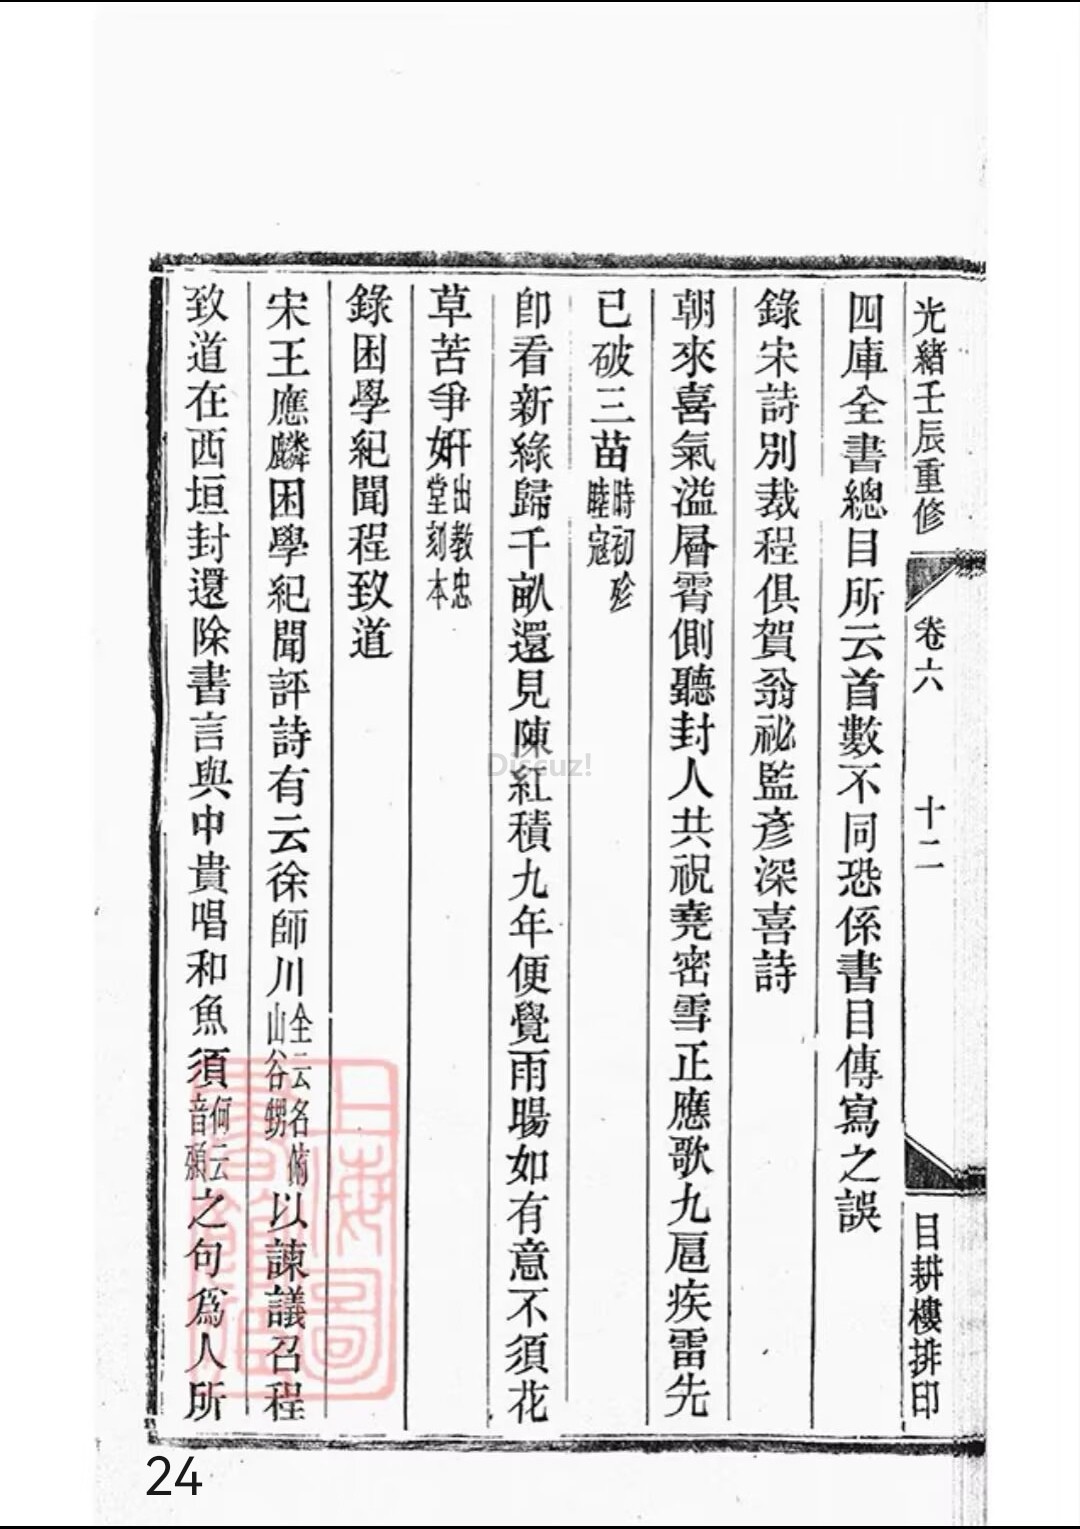 光緒壬辰重修 卷六 十二 目耕樓排印
四庫全書總目所云首數不同恐係書目傳寫之誤
錄宋詩別裁程俱賀翁祕監彥深喜詩
朝來喜氣溢層霄側聽封人共祝堯密雪正應歌九扈疾雷先
已破三苗時初殄睦寇
卽看新綠歸千畝還見陳紅積九年便覺雨暘如有意不須花
草苦爭姸出教忠堂刻本
錄困學紀聞程致道
宋王應麟困學紀聞評詩有云徐師川全云名俯山谷甥以諫議召程
致道在西垣封還除書言與中貴唱和魚須何云音須之句爲人所
上海圖書館藏
Discuz!
24